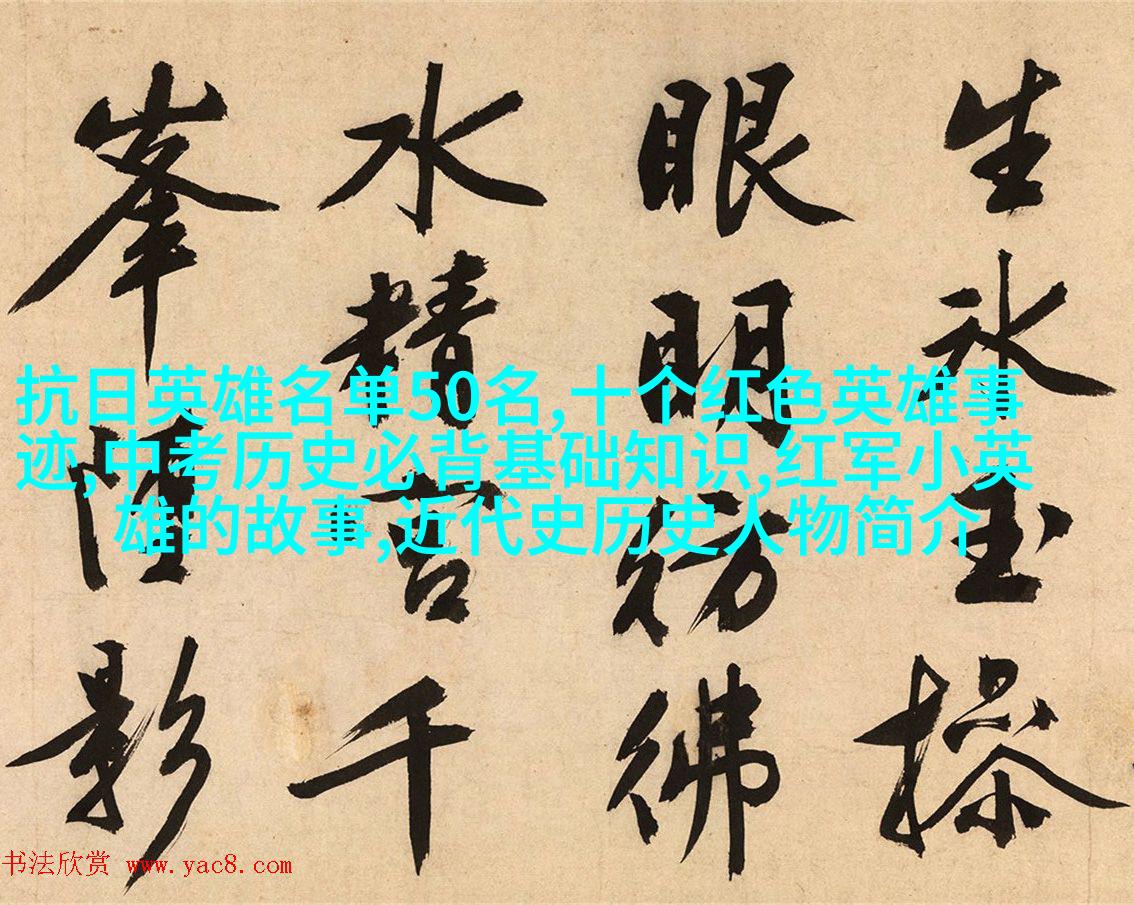 生氷玉操
眼明彷彿
水精宮千
峯影
抗日英雄名单50名,十个红色英雄事
迹,中考历史必背基础知识,红军小英
雄的故事,近代史历史人物简介
书法欣赏 www.yac8.com